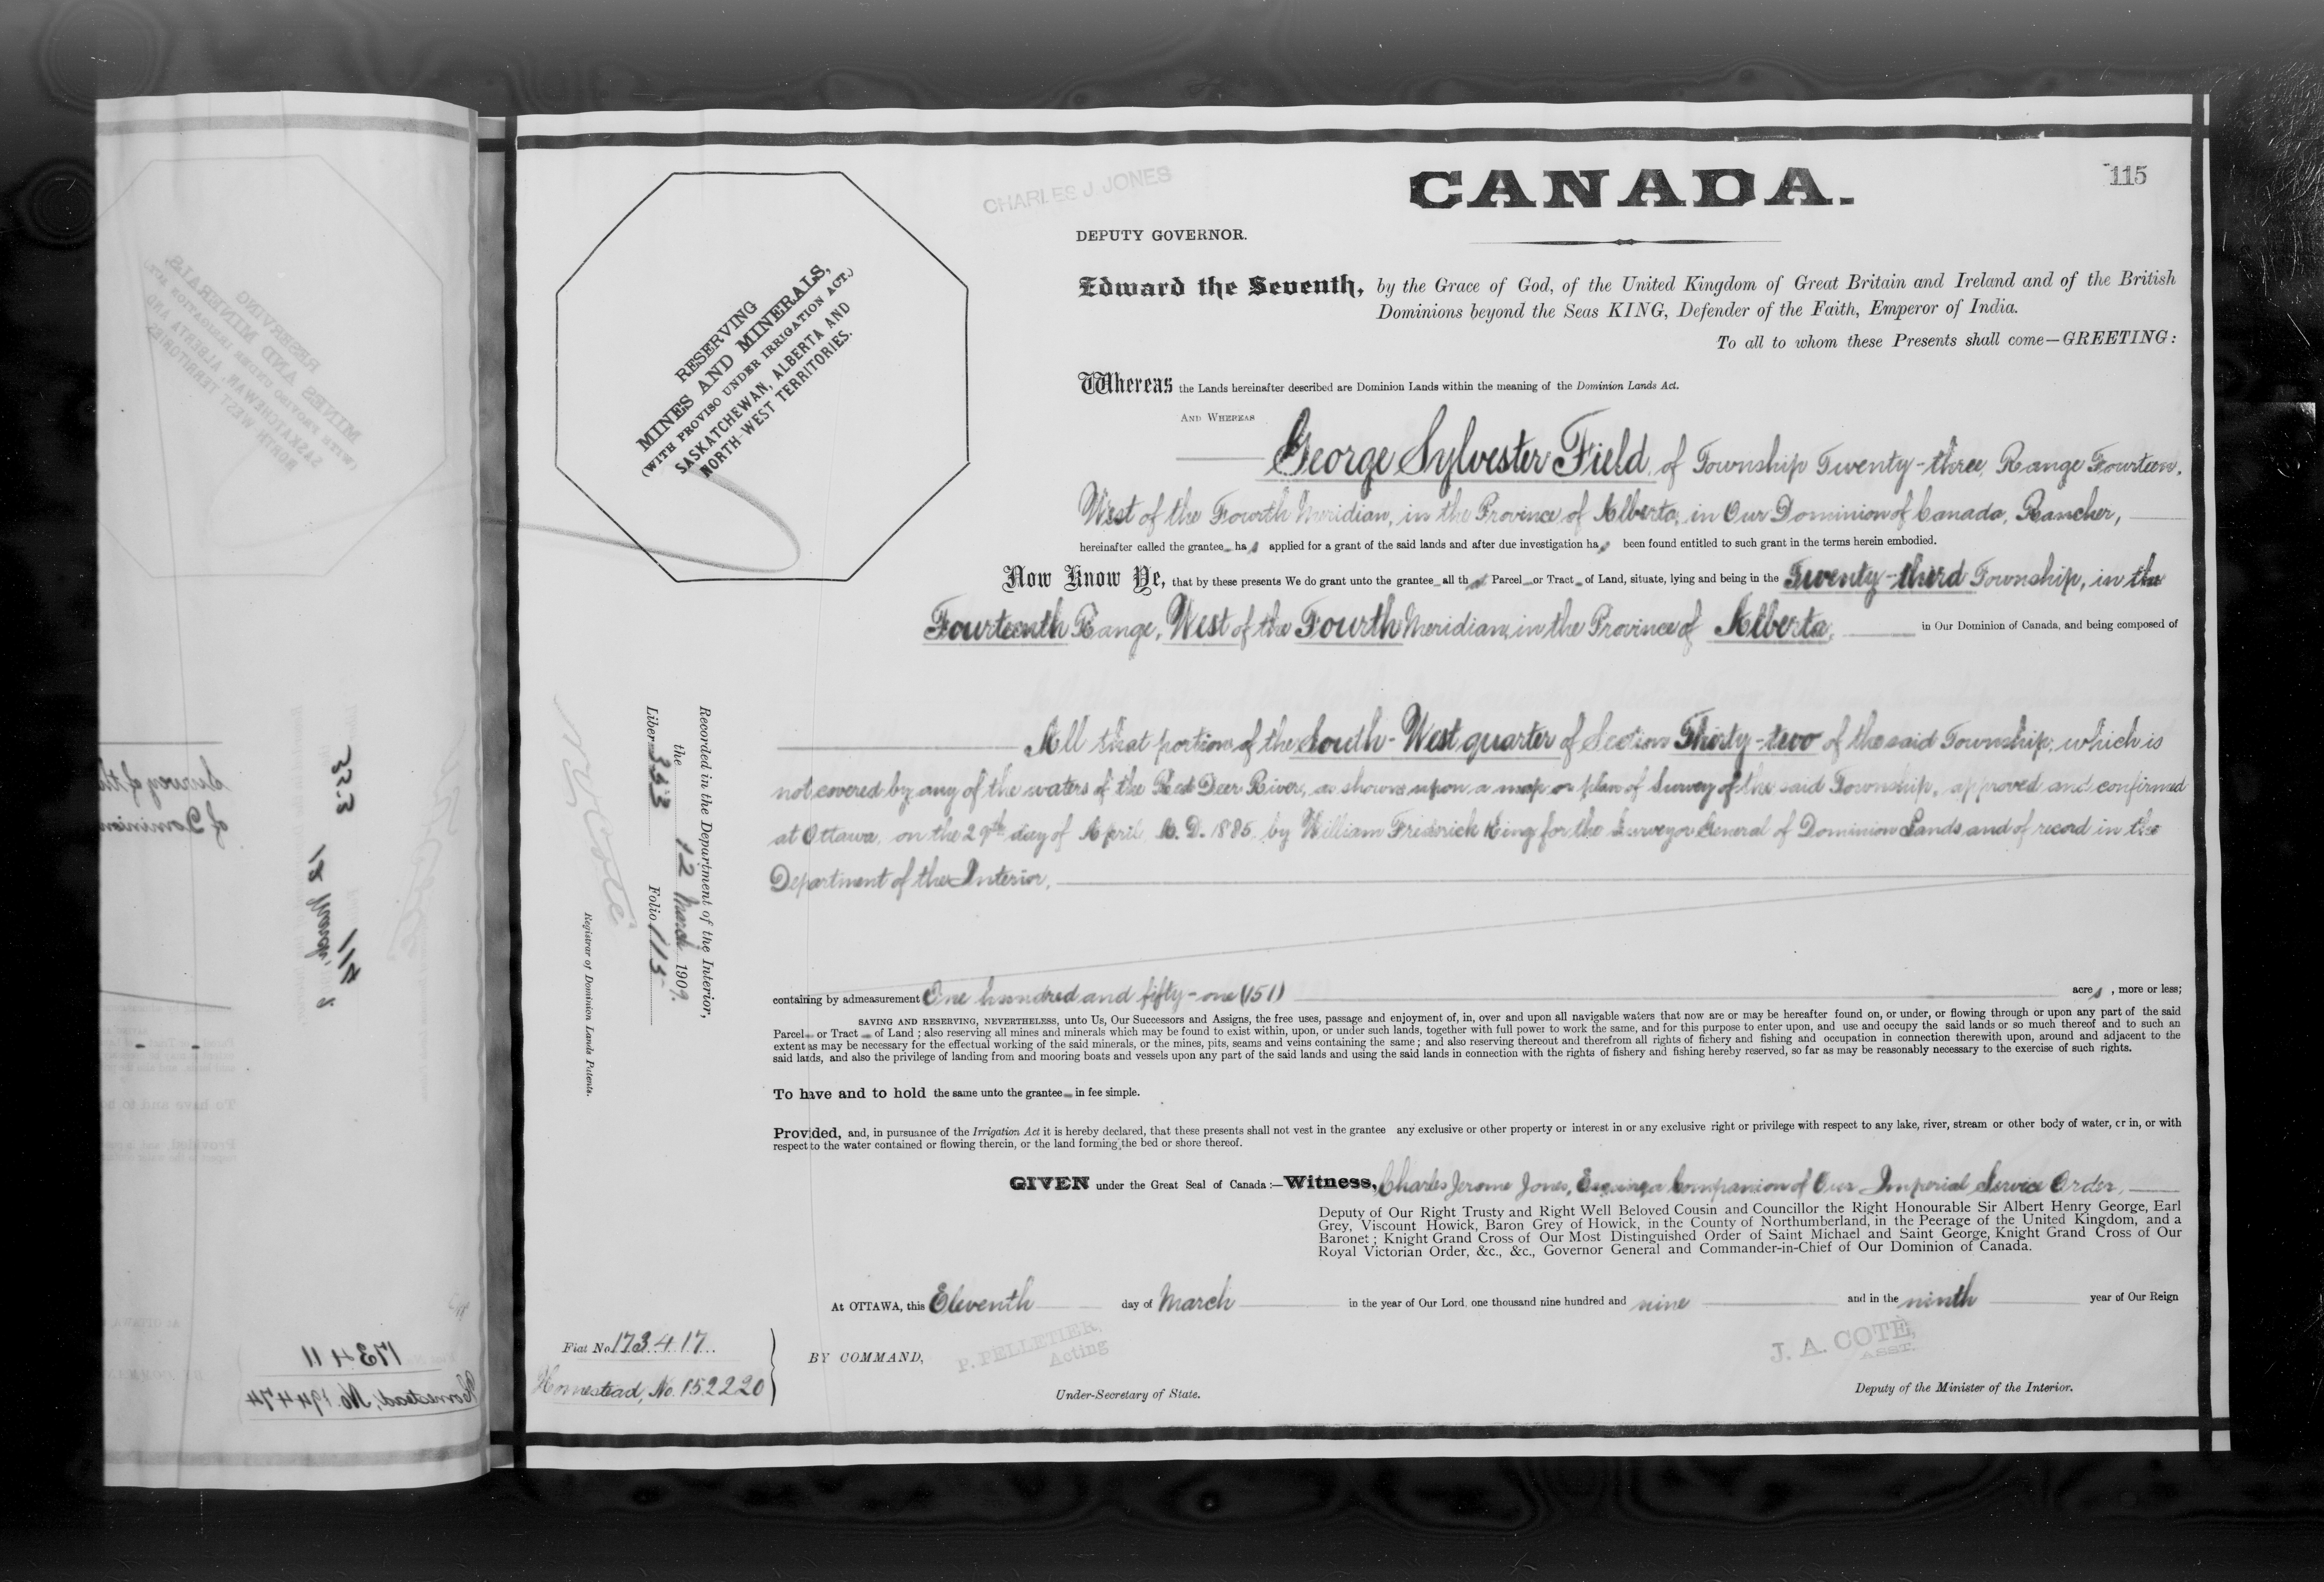 115
CHARLES J. JONES
CANADA.
DEPUTY GOVERNOR.
RESERVING
MINES AND MINERALS,
(WITH PROVISO UNDER IRRIGATION ACT.)
SASKATCHEWAN, ALBERTA AND
NORTH-WEST TERRITORIES.
Edward the Seventh, by the Grace of God, of the United Kingdom of Great Britain and Ireland and of the British
Dominions beyond the Seas KING, Defender of the Faith, Emperor of India.
To all to whom these Presents shall come—GREETING:
Whereas the Lands hereinafter described are Dominion Lands within the meaning of the Dominion Lands Act.
AND WHEREAS
George Sylvester Field, of Township Twenty-three, Range Fourteen,
West of the Fourth Meridian, in the Province of Alberta, in Our Dominion of Canada, Rancher,
hereinafter called the grantee has applied for a grant of the said lands and after due investigation has been found entitled to such grant in the terms herein embodied.
Now Know Ye, that by these presents We do grant unto the grantee all that Parcel or Tract of Land, situate, lying and being in the Twenty-third Township, in the
Fourteenth Range, West of the Fourth Meridian, in the Province of Alberta, in Our Dominion of Canada, and being composed of
All that portion of the South-West quarter of Section Thirty-two of the said Township, which is
not covered by any of the waters of the Red Deer River, as shown upon a map or plan of Survey of the said Township, approved and confirmed
at Ottawa, on the 29th day of April A.D. 1885, by William Frederick King for the Surveyor General of Dominion Lands and of record in the
Department of the Interior,
containing by admeasurement One hundred and fifty-one (151) acres, more or less;
SAVING AND RESERVING, NEVERTHELESS, unto Us, Our Successors and Assigns, the free uses, passage and enjoyment of, in, over and upon all navigable waters that now are or may be hereafter found on, or under, or flowing through or upon any part of the said
Parcel or Tract of Land; also reserving all mines and minerals which may be found to exist within, upon, or under such lands, together with full power to work the same, and for this purpose to enter upon, and use and occupy the said lands or so much thereof and to such an
extent as may be necessary for the effectual working of the said minerals, or the mines, pits, seams and veins containing the same; and also reserving thereout and therefrom all rights of fichery and fishing and occupation in connection therewith upon, around and adjacent to the
said lands, and also the privilege of landing from and mooring boats and vessels upon any part of the said lands and using the said lands in connection with the rights of fishery and fishing hereby reserved, so far as may be reasonably necessary to the exercise of such rights.
To have and to hold the same unto the grantee in fee simple.
Provided, and, in pursuance of the Irrigation Act it is hereby declared, that these presents shall not vest in the grantee any exclusive or other property or interest in or any exclusive right or privilege with respect to any lake, river, stream or other body of water, or in, or with
respect to the water contained or flowing therein, or the land forming the bed or shore thereof.
GIVEN under the Great Seal of Canada:—Witness, Charles Jerome Jones, Esquire, a Companion of Our Imperial Service Order,
Deputy of Our Right Trusty and Right Well Beloved Cousin and Councillor the Right Honourable Sir Albert Henry George, Earl
Grey, Viscount Howick, Baron Grey of Howick, in the County of Northumberland, in the Peerage of the United Kingdom, and a
Baronet; Knight Grand Cross of Our Most Distinguished Order of Saint Michael and Saint George, Knight Grand Cross of Our
Royal Victorian Order, &c., &c., Governor General and Commander-in-Chief of Our Dominion of Canada.
At OTTAWA, this Eleventh day of March in the year of Our Lord, one thousand nine hundred and nine and in the ninth year of Our Reign
BY COMMAND,
P. PELLETIER,
Acting
Under-Secretary of State.
J. A. COTÉ,
ASST.
Deputy of the Minister of the Interior.
Fiat No. 173417
Homestead, No. 152220
Recorded in the Department of the Interior,
the 12 March 1909.
Liber 353 Folio 115
N. O. Coté
Registrar of Dominion Lands Patents.
Survey of the
of Dominion
353
12 March
114
173411
Homestead, No. 194474